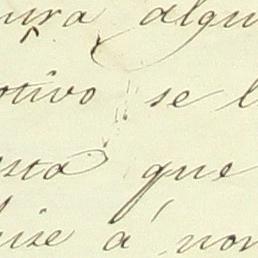 ura algu
otivo se l
sta que
hise á non